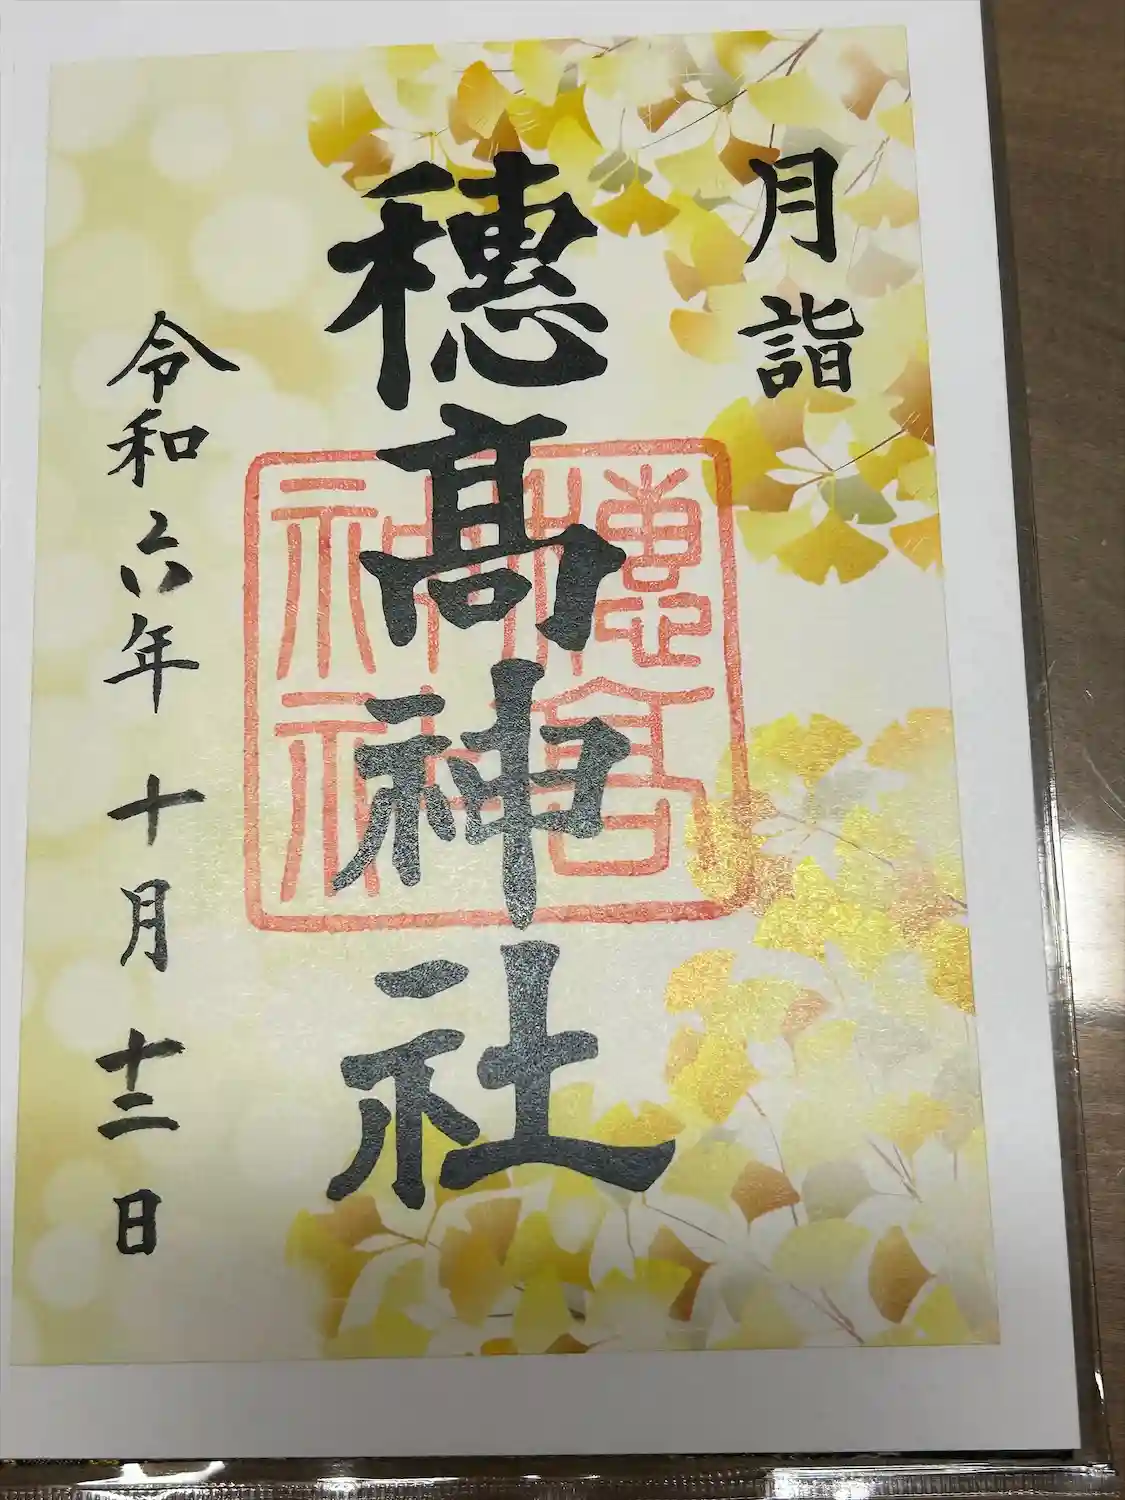 月詣
穂髙神社
穂高神社
令和六年十月十二日